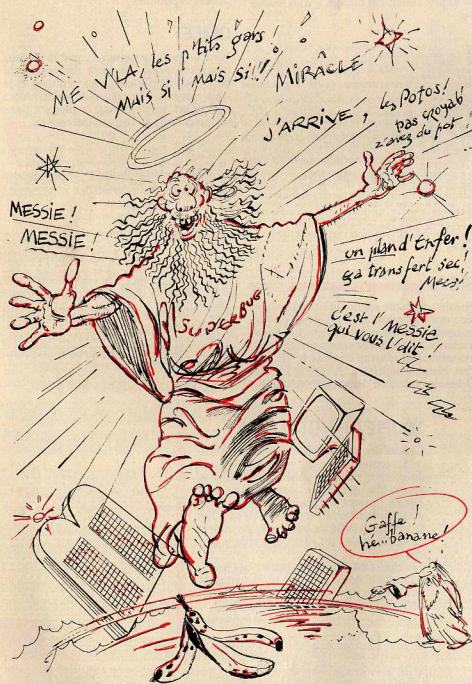 ME V'LA, les p'tits gars!
Mais si! Mais si!!
MIRÂCLE
J'ARRIVE, les Potos!
pas croyab'
z'avez du pot!
MESSIE!
MESSIE!
un plan d'Enfer!
ça transfert sec,
Mecs!
C'est l'Messie
qui vous l'dit!
SUPERBUG
Gaffe!
hé...banane!